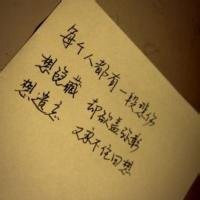 每个人都有一段悲伤
想隐藏 却欲盖弥彰
想遗忘 又不住回想